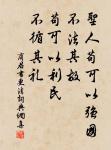 聖人苟可以強國
不法其故
苟可以利民
不循其禮
商君書更法詞典網集